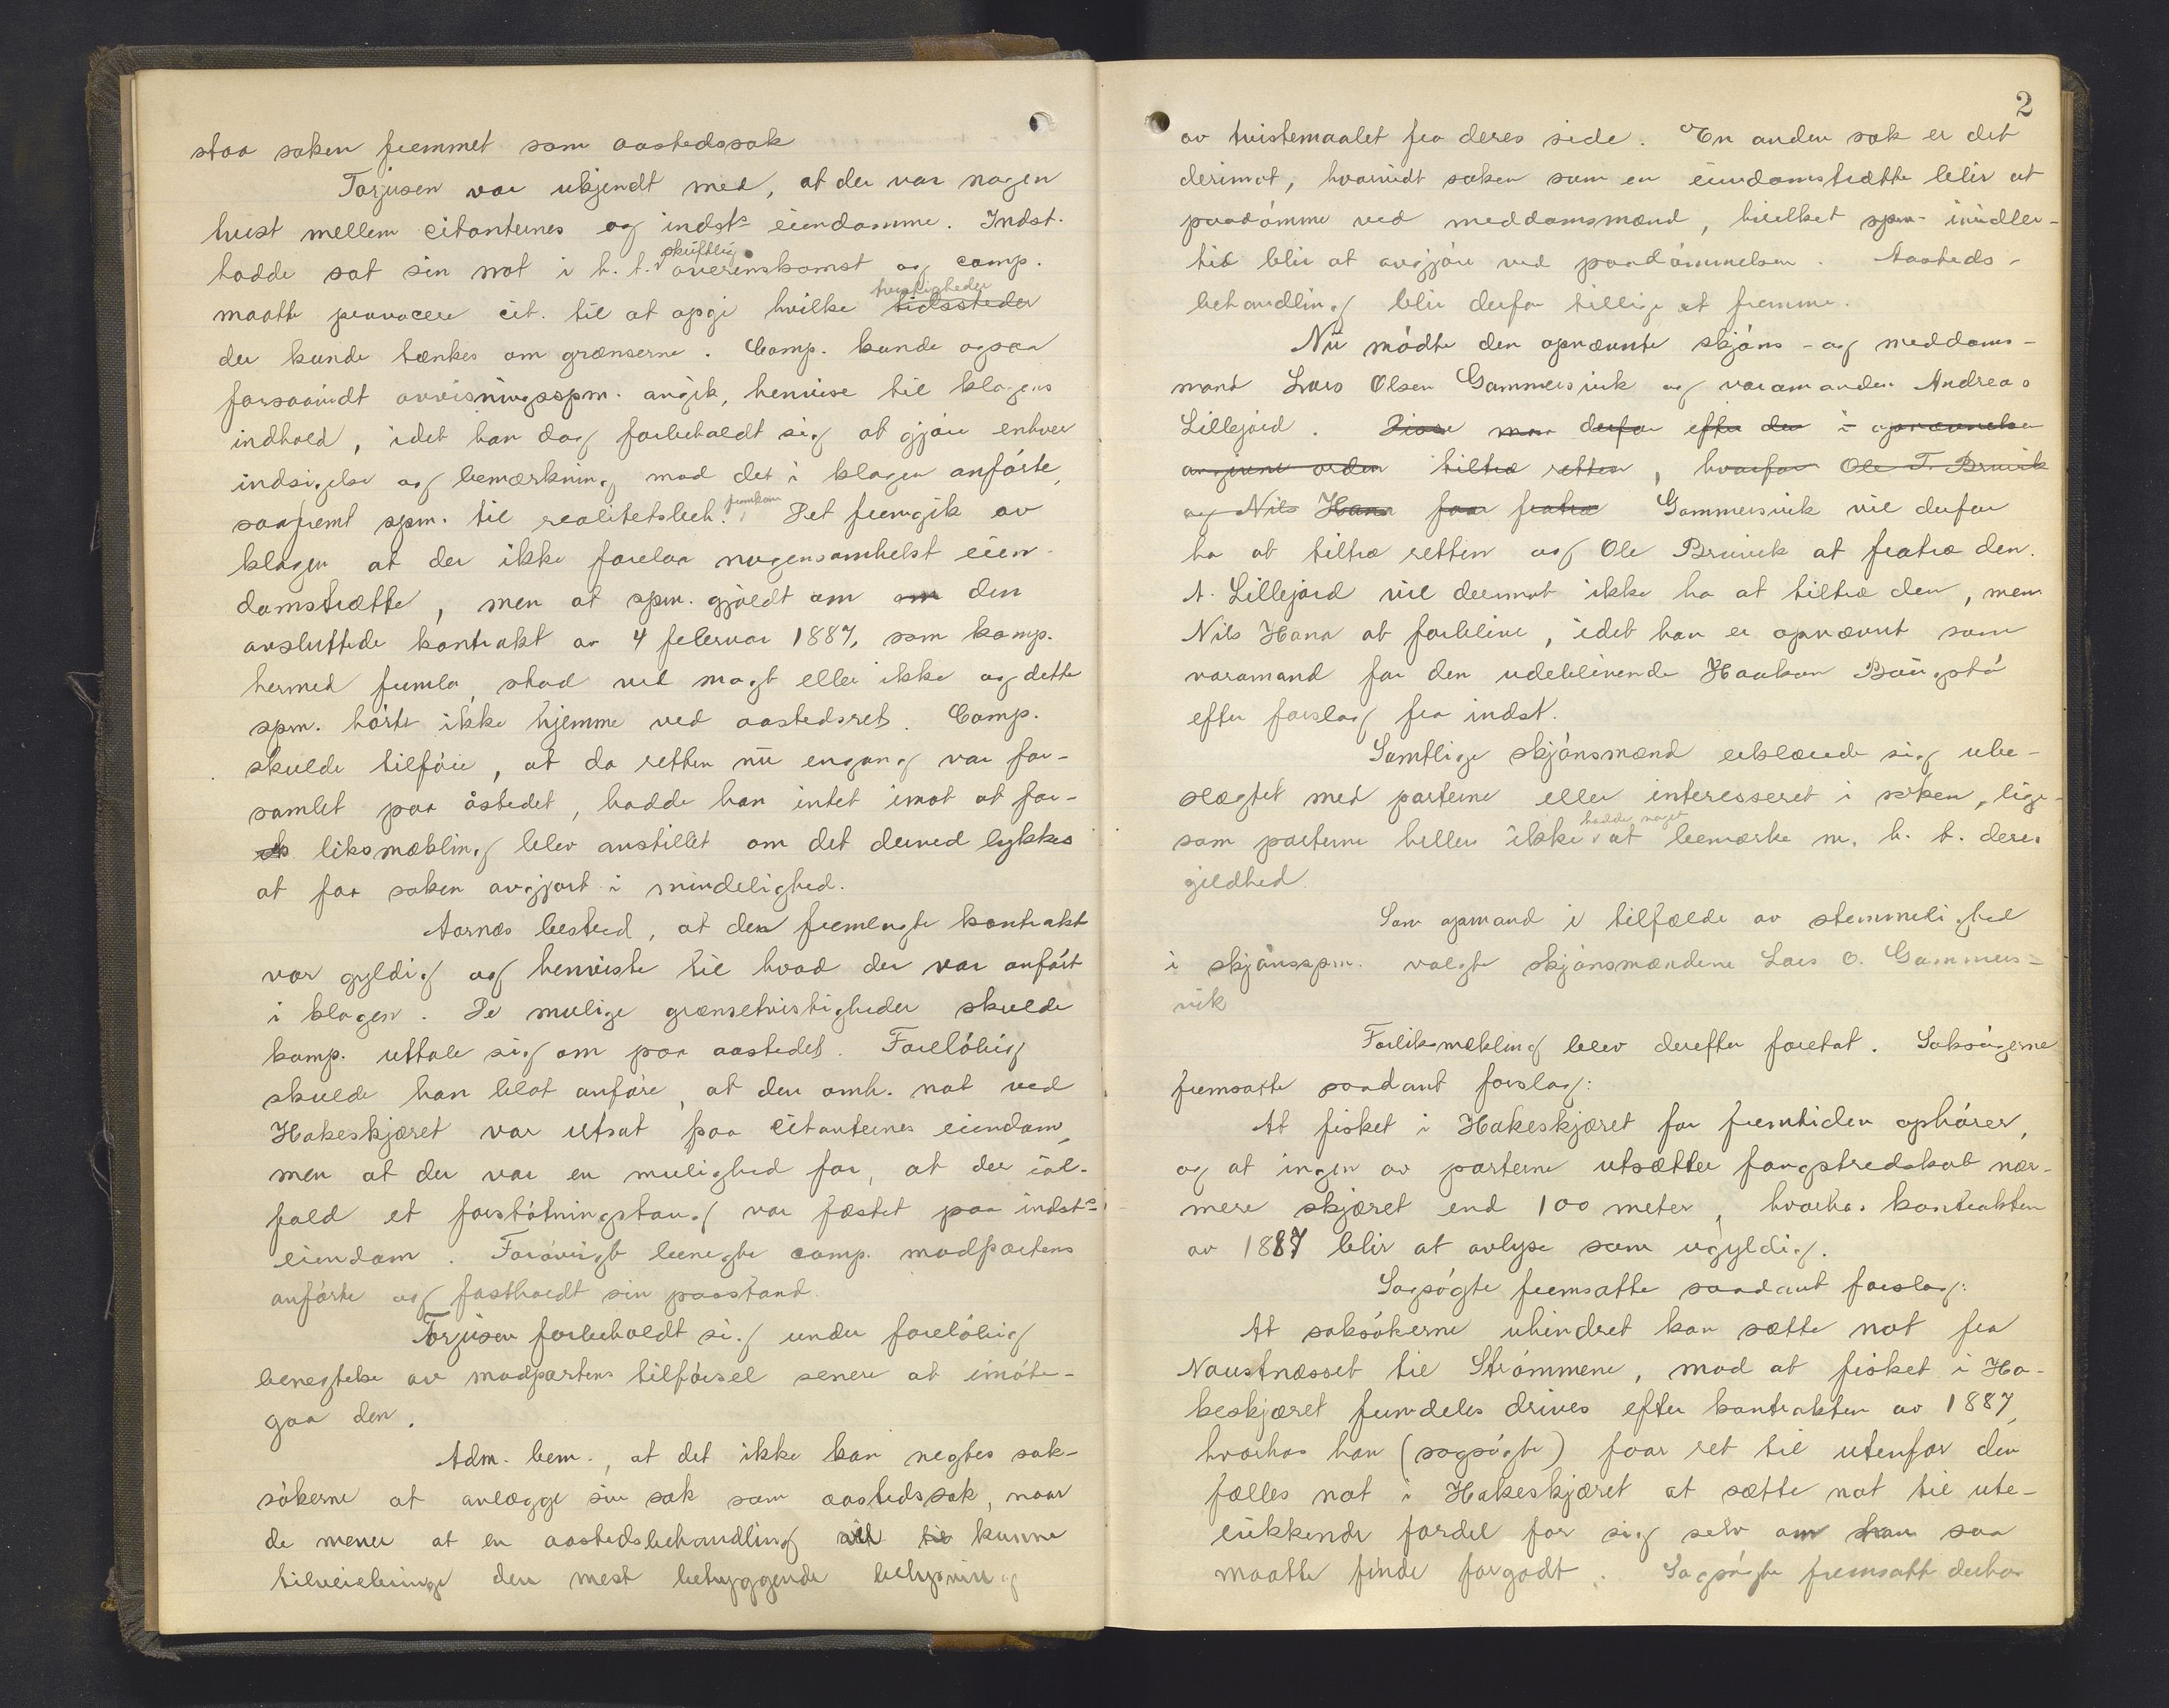 staa saken fremmet som aastedssak
Torjusen var ukjendt med, at der var nogen
tvist mellem citanternes og indsts eiendomme. Indst.
hadde sat sin not i h. t. skriftlig overenskomst og comp.
maatte provocere cit. til at opgi hvilke tidssteder tvistigheder
der kunde tænkes om grænserne. Comp. kunde ogsaa
forsaavidt avvisningsspm. angik, henvise til klagens
indhold, idet han dog forbeholdt sig at gjøre enhver
indsigelse og bemærkning mod det i klagen anførte,
saafremt spm. til realitetsbeh. fremkom. Det fremgik av
klagen at der ikke forelaa nogensomhelst eien-
domstrætte, men at spm. gjældt om om den
avsluttede kontrakt av 4 februar 1887, som komp.
hermed fremla, stod ved magt eller ikke og dette
spm. hørte ikke hjemme ved aastedsret. Comp.
skulde tilføie, at da retten nu engang var for-
samlet paa åstedet, hadde han intet imot at for-
liksmækling blev anstillet om det derved lykkes
at faa saken avgjort i mindelighed.
Aarnæs bestred, at den fremlagte kontrakt
var gyldig og henviste til hvad der var anført
i klagen. De mulige grænsetvistigheder skulde
komp. uttale sig om paa aastedet. Foreløbig
skulde han blot anføre, at den omh. not ved
Hakeskjæret var utsat paa citanternes eiendom,
men at der var en mulighed for, at der ial-
fald et forstøtningstaug var fæstet paa indsts
eiendom. Forøvrigt benegte comp. modpartens
anførte og fastholdt sin paastand.
Torjusen forbeholdt sig under foreløbig
benegtelse av modpartens tilførsel senere at imøte-
gaa den.
Adm. bem., at det ikke kan negtes sak-
søkerne at anlægge sin sak som aastedssak, naar
de mener at en aastedsbehandling vil til kunne
tilveiebringe den mest betryggende belysning
2
av tvistemaalet fra deres side. En anden sak er det
derimot, hvorvidt saken som en eiendomstrætte blir at
paadømme ved meddomsmænd, hvilket spm. imidler-
tid blir at avgjøre ved paadømmelsen. Aasteds-
behandling blir derfor tillige at fremme.
Nu mødte den opnævnte skjøns- og meddoms-
mand Lars Olsen Gammersvik og varamanden Andreas
Lillejord. Disse maa derfor efter den i opnævnelsen
angivne orden tiltræ retten, hvorfor Ole T. Bruvik
og Nils Hana faar fratræ Gammersvik vil derfor
ha at tiltræ retten og Ole Bruvik at fratræ den.
A. Lillejord vil derimot ikke ha at tiltræ den, men
Nils Hana at forblive, idet han er opnævnt som
varamand for den udeblivende Haakon Baugstø
efter forslag fra indst.
Samtlige skjønsmænd erklærede sig ube-
slægtet med parterne eller interesseret i saken, lige-
som parterne heller ikke hadde noget at bemærke m. h. t. deres
gildhed.
Som opmand i tilfælde av stemmelighed
i skjønsspm. valgte skjønsmændene Lars O. Gammers-
vik
Forliksmekling blev derefter foretat. Saksøgerne
fremsatte saadant forslag:
At fisket i Hakeskjæret for fremtiden ophører,
og at ingen av parterne utsætter fangstredskab nær-
mere skjæret end 100 meter, hvorhos kontrakten
av 1887 blir at avlyse som ugyldig.
Sagsøgte fremsatte saadant forslag:
At saksøkerne uhindret kan sætte not fra
Naustnæsset til Strømmene, mod at fisket i Ha-
keskjæret fremdeles drives efter kontrakten av 1887,
hvorhos han (sagsøgte) faar ret til utenfor den
fælles not i Hakeskjæret at sætte not til ute-
lukkende fordel for sig selv om han saa
maatte finde forgodt. Sagsøgte fremsatt derhos